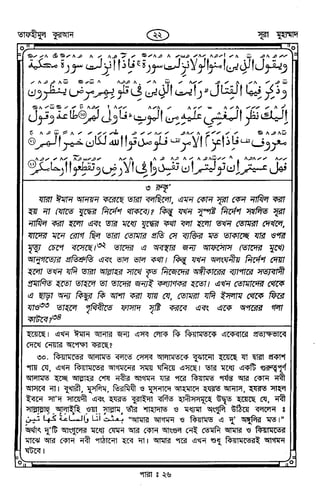 তাফহীমুল কুরআন
২২
সূরা মুহাম্মাদ
وَيَقُولُ الَّذِينَ آمَنُوا لَوْلَا نُزِّلَتْ سُورَةٌ ۖ فَإِذَا أُنزِلَتْ سُورَةٌ مُّحْكَمَةٌ
وَذُكِرَ فِيهَا الْقِتَالُ ۙ رَأَيْتَ الَّذِينَ فِي قُلُوبِهِم مَّرَضٌ يَنظُرُونَ
إِلَيْكَ نَظَرَ الْمَغْشِيِّ عَلَيْهِ مِنَ الْمَوْتِ ۖ فَأَوْلَىٰ لَهُمْ ۞ طَاعَةٌ وَقَوْلٌ
مَّعْرُوفٌ ۚ فَإِذَا عَزَمَ الْأَمْرُ فَلَوْ صَدَقُوا اللَّهَ لَكَانَ خَيْرًا لَّهُمْ ۞
فَهَلْ عَسَيْتُمْ إِن تَوَلَّيْتُمْ أَن تُفْسِدُوا فِي الْأَرْضِ وَتُقَطِّعُوا أَرْحَامَكُمْ ۞
৩ রুকূ'
যারা ঈমান আনয়ন করেছে তারা বলছিলো, এমন কোন সূরা কেন নাযিল করা
হয় না (যাতে যুদ্ধের নির্দেশ থাকবে)? কিন্তু যখন সুস্পষ্ট নির্দেশ সম্বলিত সূরা
নাযিল করা হলো এবং তার মধ্যে যুদ্ধের কথা বলা হলো তখন তোমরা দেখলে,
যাদের মনে রোগ ছিল তারা তোমার প্রতি সে ব্যক্তির মত তাকাচ্ছে যার ওপর
মৃত্যু চেপে বসেছে।৩২ তাদের এ অবস্থার জন্য আফসোস (তাদের মুখে)
আনুগত্যের প্রতিশ্রুতি এবং ভাল ভাল কথা। কিন্তু যখন অলংঘনীয় নির্দেশ দেয়া
হলো তখন যদি তারা আল্লাহর সাথে কৃত নিজেদের অঙ্গীকারের ব্যাপারে সত্যবাদী
প্রমাণিত হতো তাহলে তা তাদের জন্যই কল্যাণকর হতো। এখন তোমাদের থেকে
এ ছাড়া অন্য কিছুর কি আশা করা যায় যে, তোমরা যদি ইসলাম থেকে ফিরে
যাও৩৩ তাহলে পৃথিবীতে ফাসাদ সৃষ্টি করবে এবং একে অপরের গলা
কাটবে?৩৪
হয়েছে। এখন ঈমান আনার জন্য এসব লোক কি কিয়ামতকে একেবারে প্রত্যক্ষভাবে
দেখে নেয়ার অপেক্ষা করছে?
৩০. কিয়ামতের আলামত বলতে সেসব আলামতকে বুঝানো হয়েছে যা দ্বারা প্রকাশ
পায় যে, এখন কিয়ামতের আগমনের সময় ঘনিয়ে এসেছে। তার মধ্যে একটি গুরুত্বপূর্ণ
আলামত হচ্ছে আল্লাহর শেষ নবীর আগমন যার পরে কিয়ামত পর্যন্ত আর কোন নবী
আসবে না। বুখারী, মুসলিম, তিরমিযী ও মুসনাদে আহমাদে হযরত আনাস, হযরত সাহল
ইবনে সা'দ সায়েদী এবং হযরত বুরাইদা বর্ণিত হাদীসসমূহে উদ্ধৃত হয়েছে যে, নবী
সাল্লাল্লাহু আলাইহি ওয়া সাল্লাম, তাঁর শাহাদাত ও মধ্যমা আংগুলি উঠিয়ে বললেন :
بعثت انا والساعة كهاتين "আমার আগমন ও কিয়ামত এ দু' অঙ্গুলির মত।"
অর্থাৎ দু'টি আংগুলের মধ্যে যেমন আর কোন আংগুল নেই তেমনি আমার ও কিয়ামতের
মাঝে আর কোন নবী পাঠানো হবে না। আমার পরে এখন শুধু কিয়ামতেরই আগমন
ঘটবে।
পারা : ২৬